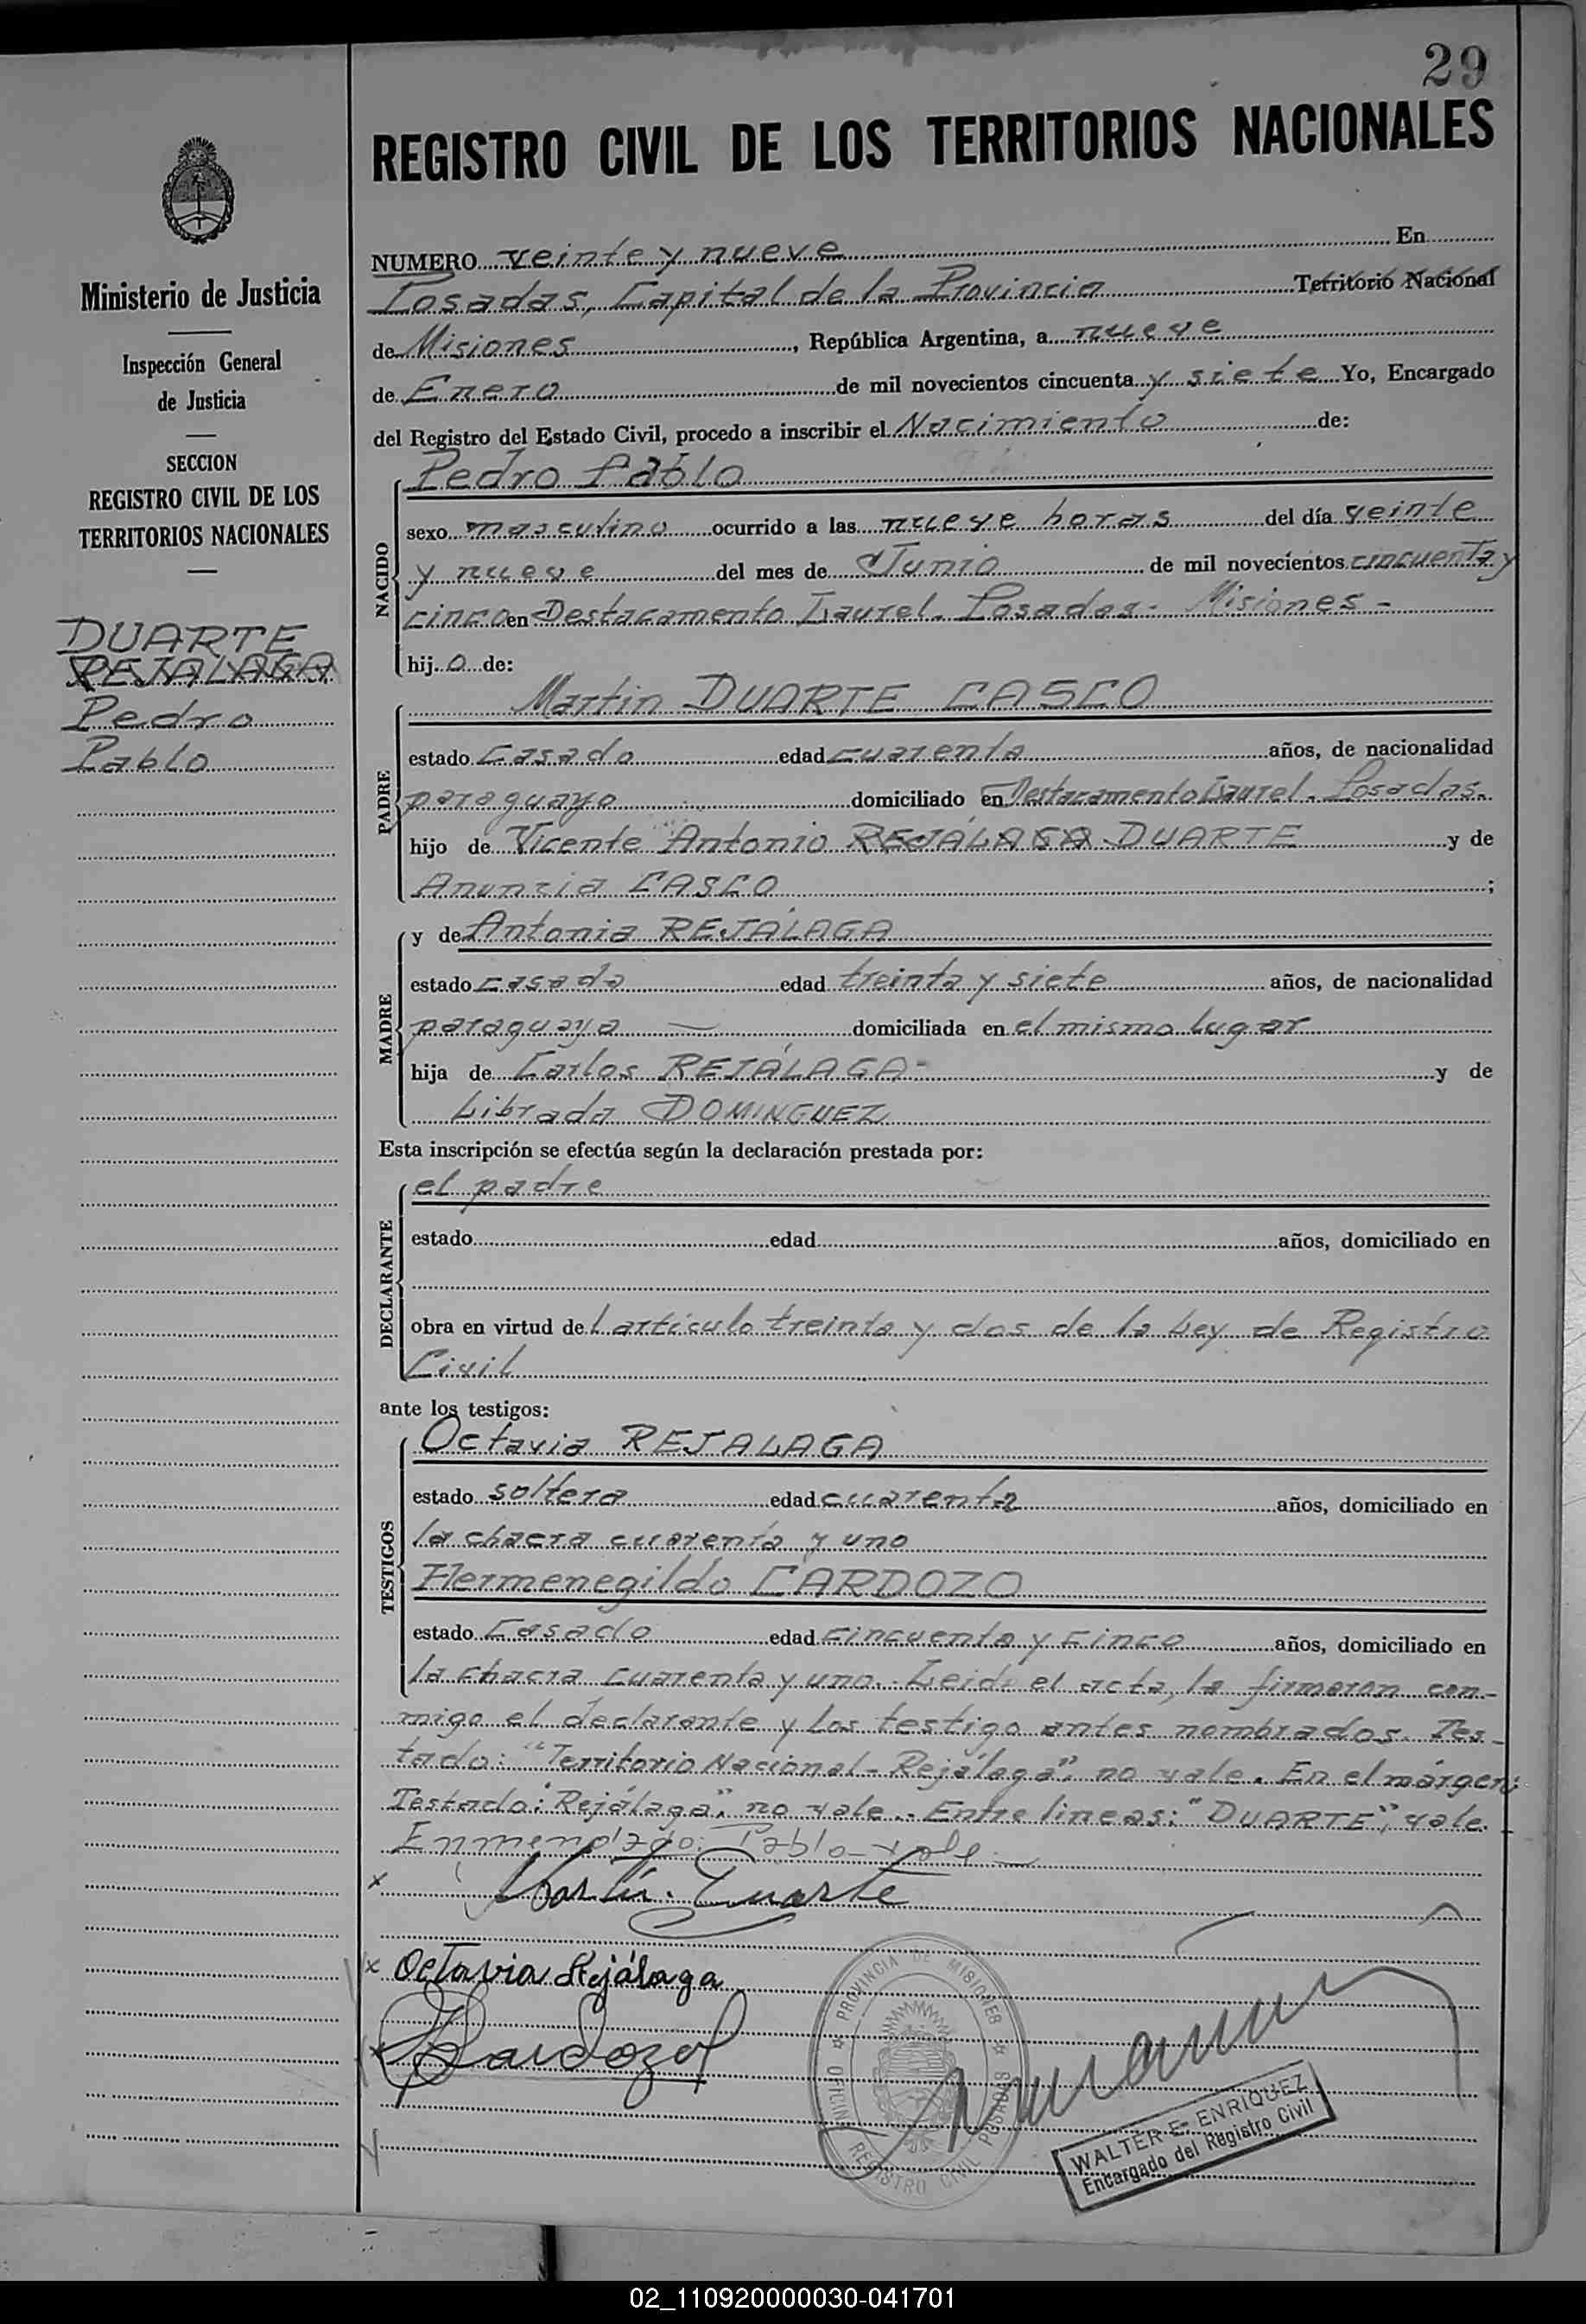 29
REGISTRO CIVIL DE LOS TERRITORIOS NACIONALES
Ministerio de Justicia
Inspección General
de Justicia
SECCION
REGISTRO CIVIL DE LOS
TERRITORIOS NACIONALES
DUARTE
REJALAGA
Pedro
Pablo
NUMERO veinte y nueve En
Posadas, Capital de la Provincia Territorio Nacional
de Misiones, República Argentina, a nueve
de Enero de mil novecientos cincuenta y siete Yo, Encargado
del Registro del Estado Civil, procedo a inscribir el Nacimiento de:
NACIDO
Pedro Pablo
sexo masculino ocurrido a las nueve horas del día veinte
y nueve del mes de Junio de mil novecientos cincuenta y
cinco en Destacamento Laurel. Posadas - Misiones -
hijo de:
PADRE
Martin DUARTE CASCO
estado Casado edad cuarenta años, de nacionalidad
paraguayo domiciliado en Destacamento Laurel. Posadas.
hijo de Vicente Antonio REJÁLAGA DUARTE y de
Anuncia CASCO;
MADRE
y de Antonia REJÁLAGA
estado casada edad treinta y siete años, de nacionalidad
paraguaya — domiciliada en el mismo lugar
hija de Carlos REJÁLAGA - y de
Librada DOMINGUEZ
Esta inscripción se efectúa según la declaración prestada por:
DECLARANTE
el padre
estado edad años, domiciliado en
obra en virtud del artículo treinta y dos de la Ley de Registro
Civil
ante los testigos:
TESTIGOS
Octavia REJALAGA
estado soltera edad cuarenta años, domiciliado en
la chacra cuarenta y uno
Hermenegildo CARDOZO
estado Casado edad cincuenta y cinco años, domiciliado en
la chacra cuarenta y uno. Leida el acta, la firmaron con-
migo el declarante y los testigo antes nombrados. Tes-
tado: "Territorio Nacional - Rejálaga", no vale. En el márgen:
Testado: "Rejálaga", no vale.. Entre lineas: "DUARTE", vale. -
Enmendado: Pablo - vale —
x Martín Duarte
x Octavia Rejálaga
x HCardozo
PROVINCIA DE MISIONES
OFICINA REGISTRO CIVIL POSADAS
WALTER E. ENRIQUEZ
Encargado del Registro Civil
02_110920000030-041701